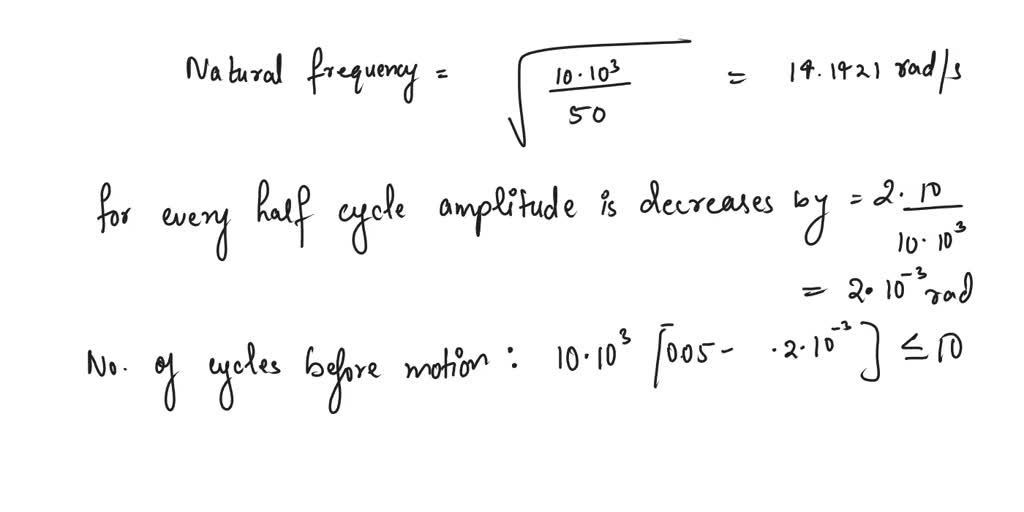 Natural frequency = √(10·10³ / 50) = 14.1421 rad/s
for every half cycle amplitude is decreases by = 2· 10 / 10·10³
= 2·10⁻³ rad
No. of cycles before motion : 10·10³ [0.05 - ·2·10⁻³] ≤ 10